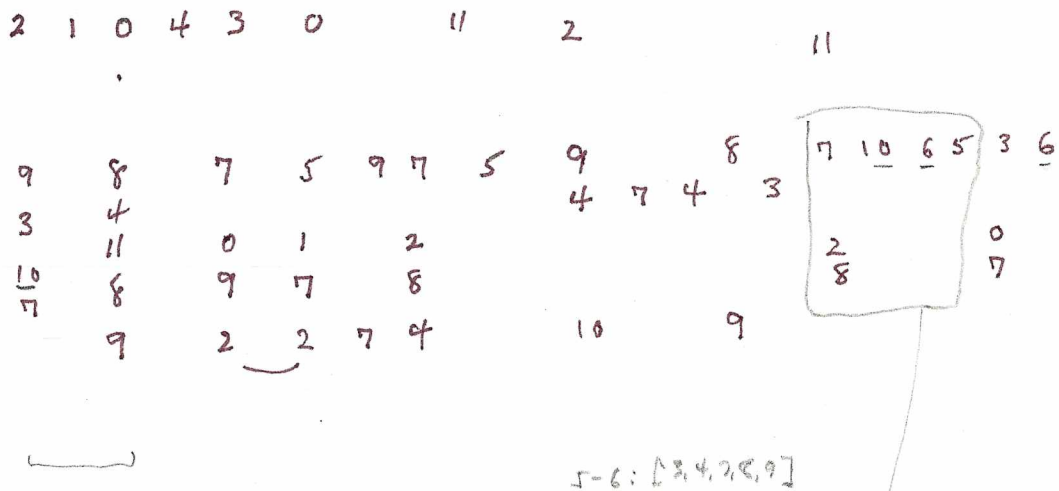 2 1 0 4 3 0 11 2 11
9 8 7 5 9 7 5 9 8 7 10 6 5 3 6
3 4 4 7 4 3
11 0 1 2 2 0
10 8 9 7 8 8 7
7
9 2 2 7 4 10 9
5-6: [3,4,7,8,9]